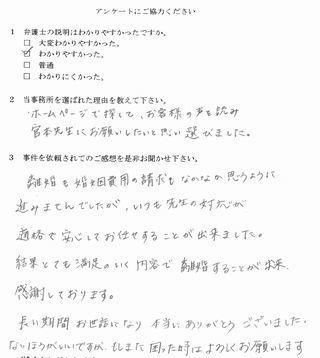 アンケートにご協力ください
1 弁護士の説明はわかりやすかったですか。
□ 大変わかりやすかった。
☑ わかりやすかった。
□ 普通
□ わかりにくかった。
2 当事務所を選ばれた理由を教えて下さい。
ホームページで探して、お客様の声を読み
宮本先生にお願いしたいと思い選びました。
3 事件を依頼されてのご感想を是非お聞かせ下さい。
離婚も婚姻費用の請求もなかなか思うように
進みませんでしたが、いつも先生の対応が
適格で安心してお任せすることが出来ました。
結果とても満足のいく内容で離婚することが出来、
感謝しております。
長い期間お世話になり本当にありがとうございました。
ないほうがいいですが、もしまた困った時はよろしくお願いします